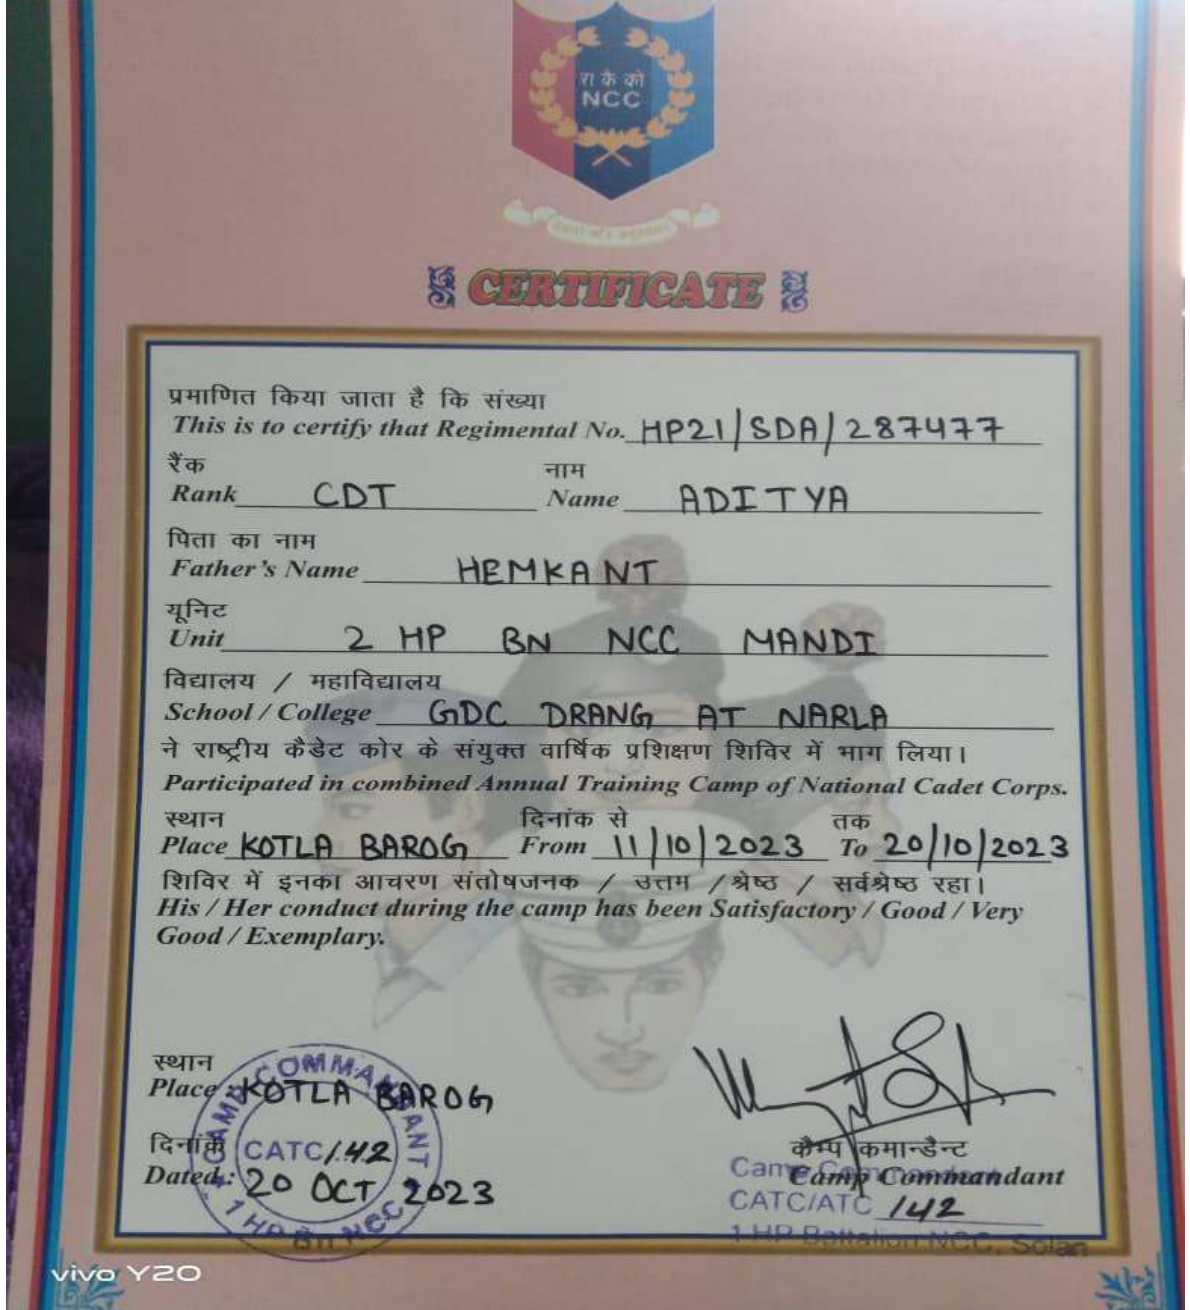 रा कै को
NCC
CERTIFICATE
प्रमाणित किया जाता है कि संख्या
This is to certify that Regimental No. HP21/SDA/287477
रैंक नाम
Rank CDT Name ADITYA
पिता का नाम
Father's Name HEMKANT
यूनिट
Unit 2 HP BN NCC MANDI
विद्यालय / महाविद्यालय
School / College GDC DRANG AT NARLA
ने राष्ट्रीय कैडेट कोर के संयुक्त वार्षिक प्रशिक्षण शिविर में भाग लिया।
Participated in combined Annual Training Camp of National Cadet Corps.
स्थान दिनांक से तक
Place KOTLA BAROG From 11/10/2023 To 20/10/2023
शिविर में इनका आचरण संतोषजनक / उत्तम / श्रेष्ठ / सर्वश्रेष्ठ रहा।
His / Her conduct during the camp has been Satisfactory / Good / Very
Good / Exemplary.
स्थान
Place: KOTLA BAROG
दिनांक
Dated: 20 OCT 2023
CAMP COMMANDANT
CATC/142
1 HP Bn NCC
कैम्प कमान्डैन्ट
Camp Commandant
Camp Commandant
CATC/ATC /142
1 HP Battalion NCC, Solan
vivo Y20